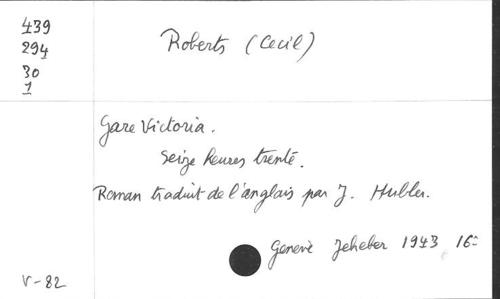 439
294
30
1
Roberts (Cecil)
Gare Victoria.
Seize heures trente.
Roman traduit de l'anglais par J. Hubler.
Genève Jeheber 1943 16º
V-82